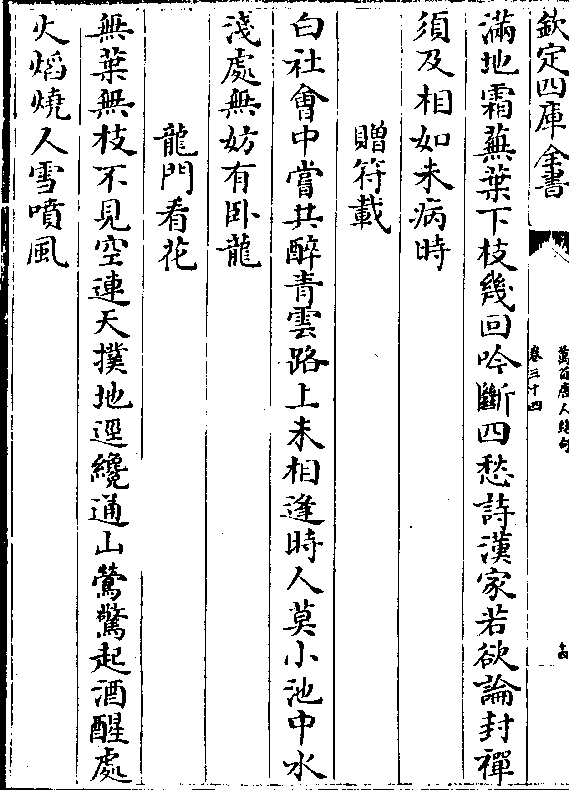 欽定四庫全書
萬首唐人絶句
卷三十四
滿地霜蕪葉下枝幾回吟斷四愁詩漢家若欲論封禪
須及相如未病時
贈符載
白社會中嘗共醉青雲路上未相逢時人莫小池中水
淺處無妨有卧龍
龍門看花
無葉無枝不見空連天撲地逕纔通山鶯驚起酒醒處
火熖燒人雪噴風